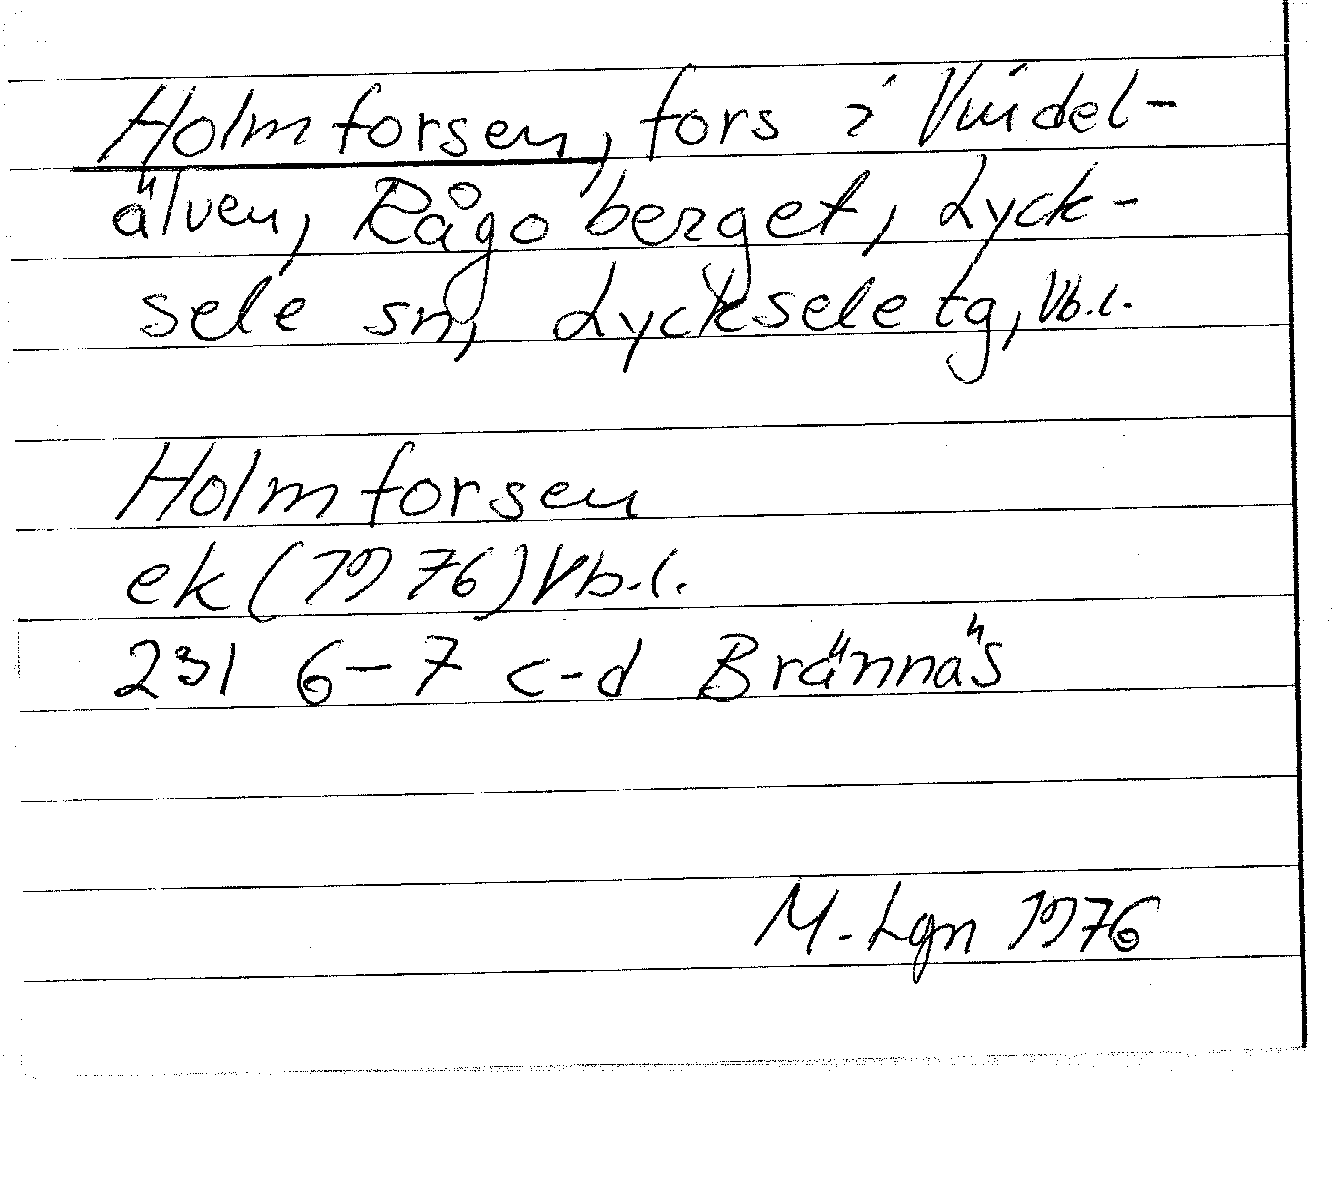 Holmforsen, fors i Vindel-
älven, Rågoberget, Lyck-
sele sn, Lycksele tg, Vb.l.
Holmforsen
ek (1976) Vb.l.
231 6-7 c-d Brännäs
M. Lgn 1976